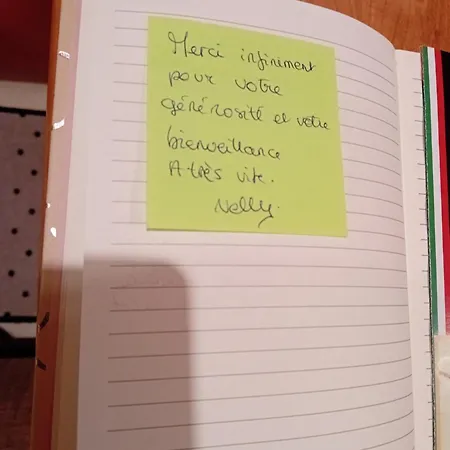 Merci infiniment
pour votre
générosité et votre
bienveillance
A très vite.
Nelly.